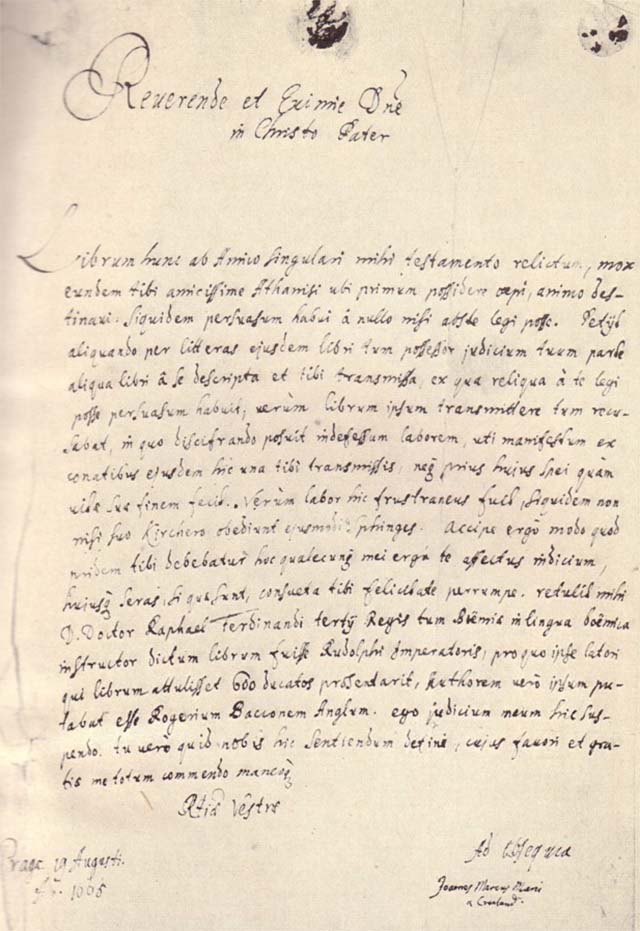 Reverende et Eximie Dñe
in Christo Pater
Librum hunc ab Amico singulari mihi testamento relictum, mox
eundem tibi amicissime Athanasi ubi primum possidere cæpi, animo des-
tinavi: siquidem persuasum habui â nullo nisi abs te legi posse. Petijt
aliquando per litteras ejusdem libri tum possessor judicium tuum parte
aliqua libri â se descripta et tibi transmissa, ex qua reliqua â te legi
posse persuasum habuit; verùm librum ipsum transmittere tum recu-
sabat, in quo discifrando posuit indefessum laborem, uti manifestum ex
conatibus ejusdem hîc una tibi transmissis, neq prius hujus spei quàm
vitæ suæ finem fecit. Verùm labor hic frustraneus fuit, siquidem non
nisi suo Kirchero obediunt ejusmodi sphinges. Accipe ergò modo quod
pridem tibi debebatur hoc qualecunq mei erga te affectus indicium,
hujusq seras, si quæ sunt, consueta tibi felicitate perrumpe. retulit mihi
D. Doctor Raphael Ferdinandi tertij Regis tum Boëmiæ in lingua boëmica
instructor dictum librum fuisse Rudolphi Imperatoris, pro quo ipse latori
qui librum attulisset 600 ducatos præsentarit, Authorem verò ipsum pu-
tabat esse Rogerium Bacconem Anglum. ego judicium meum hic sus-
pendo. tu verò quid nobis hic sentiendum defini, cujus favori et gra-
tiæ me totum commendo maneoq
Rtiæ Vestræ
Ad Obsequia
Pragæ 19 Augusti
1665
Joannes Marcus Marci
a Cronland